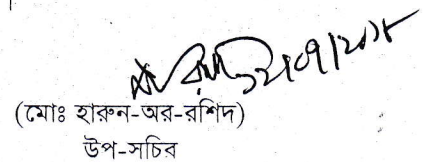 (মোঃ হারুন-অর-রশিদ)
উপ-সচিব